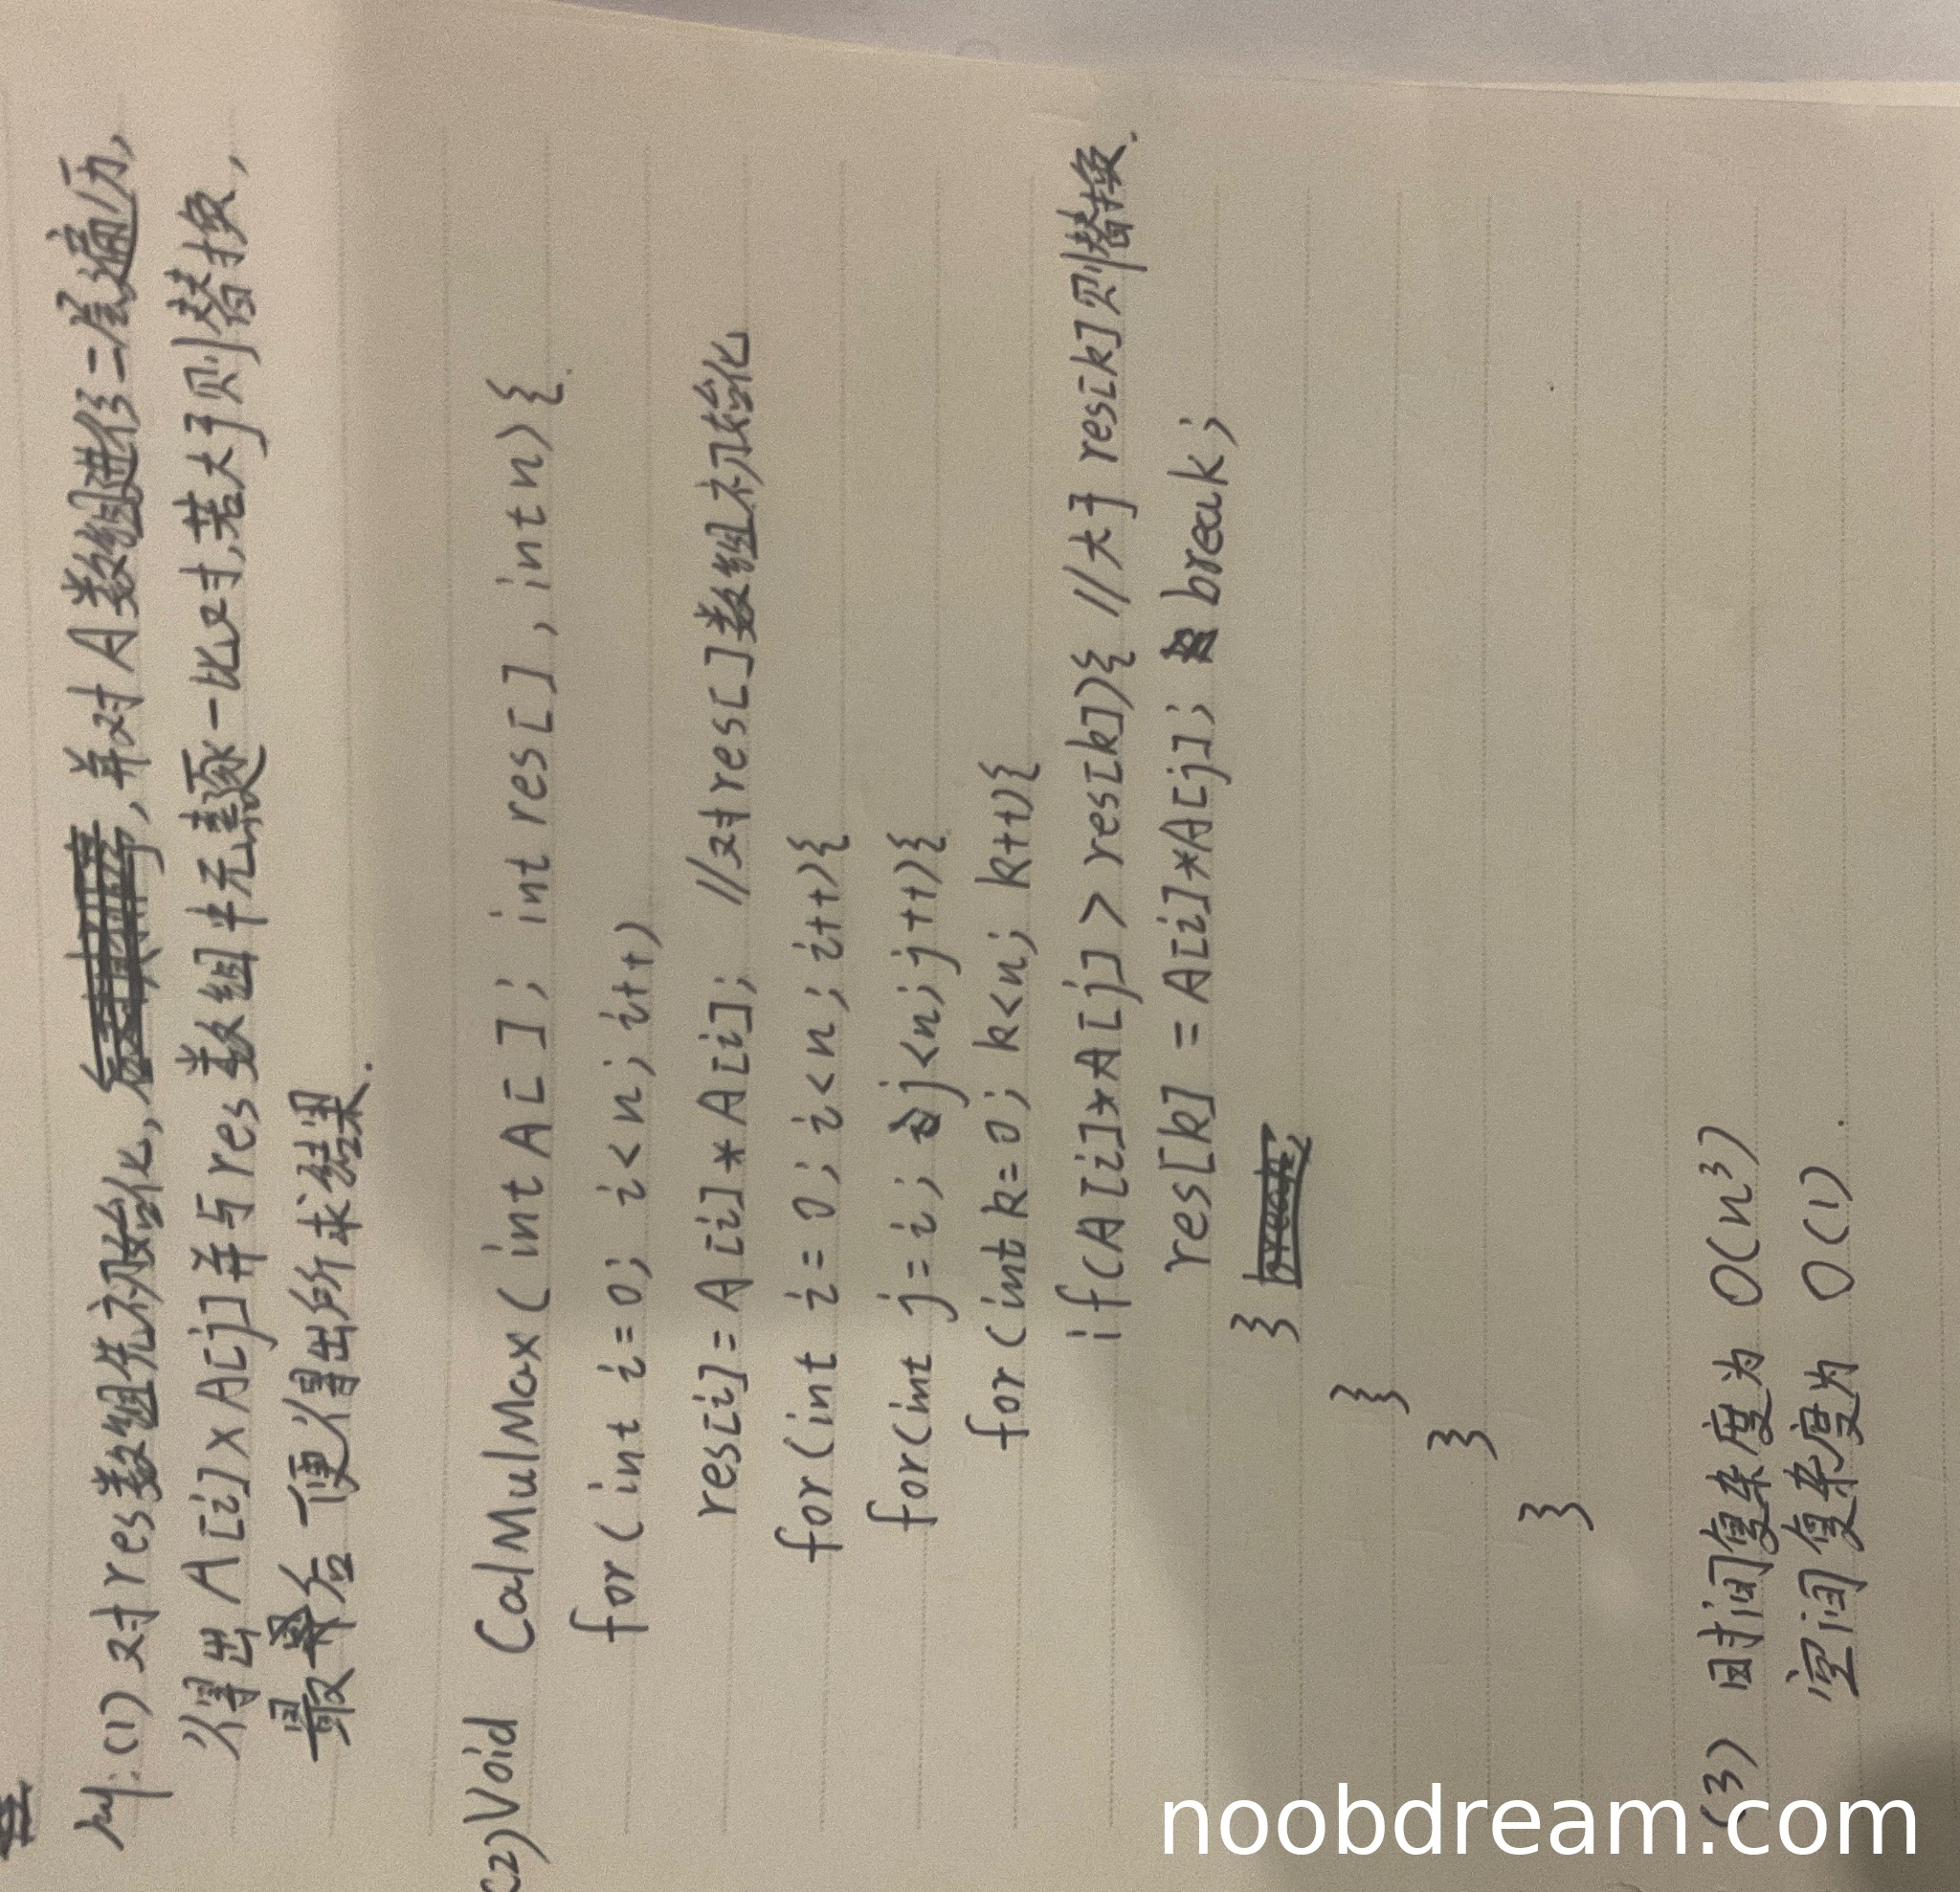 41.(1) 对res数组先初始化, 并对A数组进行二层遍历,
得出 A[i]×A[j]并与res数组中元素逐一比对,若大于则替换,
最后便得出所求结果.
(2)Void CalMulMax(int A[]; int res[], int n){
for(int i=0; i<n; i++)
res[i]=A[i]*A[i]; //对res[]数组初始化
for(int i=0; i<n; i++){
for(int j=i; j<n; j++){
for(int k=0; k<n; k++){
if(A[i]*A[j]>res[k]){ //大于res[k]则替换.
res[k] =A[i]*A[j]; break;
}
}
}
}
(3) 时间复杂度为 O(n³)
空间复杂度为 O(1).
noobdream.com